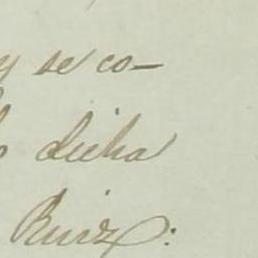 y se co-
dicha
Ruiz: